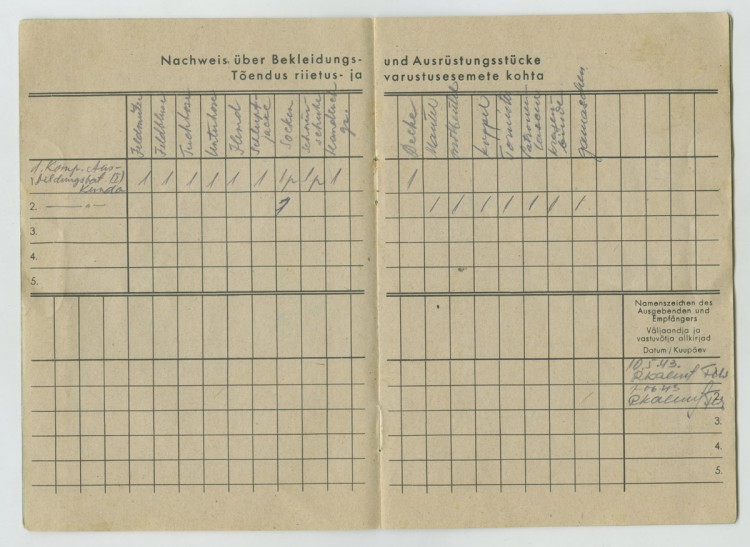 Nachweis über Bekleidungs- und Ausrüstungsstücke
Tõendus riietus- ja varustusesemete kohta
Feldmütze
Feldbluse
Tuchhose
Unterhose
Hemd
Schlupf-
jacke
Socken
Schnür-
schuhe
Handtuch
Decke
Mantel
Koppel
Tornister
Patronen-
tasche
Kragen-
binde
Gamaschen
1. Komp. Aus-
bildungsbat. II
Kunda
1. 1 1 1 1 1 1 1p 1p 1 1
2. — " — 1 1 1 1 1 1 1 1
3.
4.
5.
Namenszeichen des
Ausgebenden und
Empfängers
Väljaandja ja
vastuvõtja allkirjad
Datum / Kuupäev
10.5.43.
2.
3.
4.
5.